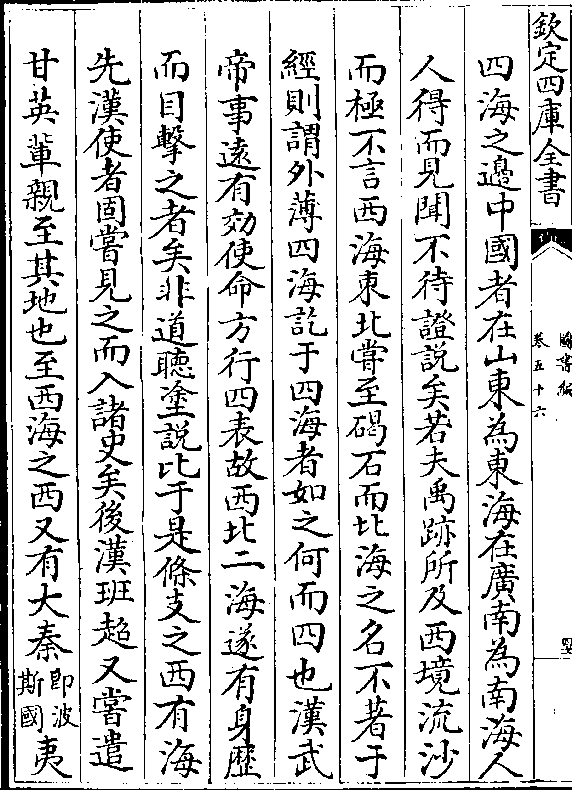 欽定四庫全書
圖書編
卷五十六
四海之邊中國者在山東為東海在廣南為南海人
人得而見聞不待證説矣若夫禹跡所及西境流沙
而極不言西海東北嘗至碣石而北海之名不著于
經則謂外薄四海訖于四海者如之何而四也漢武
帝事逺有効使命方行四表故西北二海遂有身歴
而目擊之者矣非道聽塗説比于是條支之西有海
先漢使者固嘗見之而入諸史矣後漢班超又嘗遣
甘英輩親至其地也至西海之西又有大秦即波斯國夷